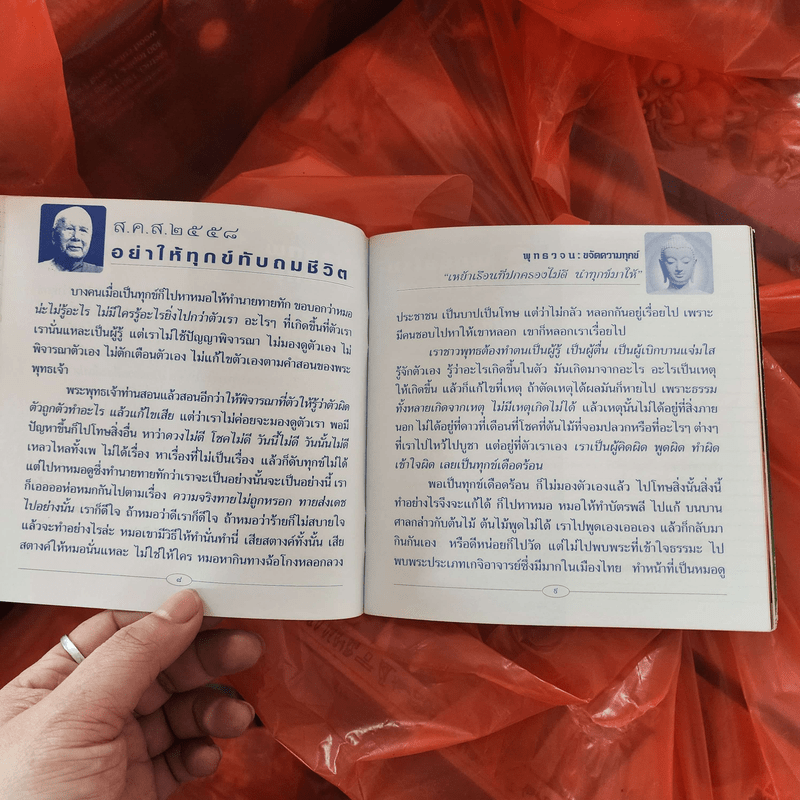 ส.ค.ส.๒๕๕๘
อย่าให้ทุกข์ทับถมชีวิต
บางคนเมื่อเป็นทุกข์ก็ไปหาหมอให้ทำนายทายทัก ขอบอกว่าหมอ
น่ะไม่รู้อะไร ไม่มีใครรู้อะไรยิ่งไปกว่าตัวเรา อะไรๆ ที่เกิดขึ้นที่ตัวเรา
เรานั่นแหละเป็นผู้รู้ แต่เราไม่ใช้ปัญญาพิจารณา ไม่มองดูตัวเอง ไม่
พิจารณาตัวเอง ไม่ตักเตือนตัวเอง ไม่แก้ไขตัวเองตามคำสอนของพระ
พุทธเจ้า
พระพุทธเจ้าท่านสอนแล้วสอนอีกว่าให้พิจารณาที่ตัวให้รู้ว่าตัวผิด
ตัวถูกตัวทำอะไร แล้วแก้ไขเสีย แต่ว่าเราไม่ค่อยจะมองดูตัวเรา พอมี
ปัญหาขึ้นก็ไปโทษสิ่งอื่น หาว่าดวงไม่ดี โชคไม่ดี วันนี้ไม่ดี วันนั้นไม่ดี
เหลวไหลทั้งเพ ไม่ได้เรื่อง หาเรื่องที่ไม่เป็นเรื่อง แล้วก็ดับทุกข์ไม่ได้
แต่ไปหาหมอดูซึ่งทำนายทายทักว่าเราจะเป็นอย่างนั้นจะเป็นอย่างนี้ เรา
ก็เออออห่อหมกกันไปตามเรื่อง ความจริงทายไม่ถูกหรอก ทายส่งเดช
ไปอย่างนั้น เราก็ดีใจ ถ้าหมอว่าดีเราก็ดีใจ ถ้าหมอว่าร้ายก็ไม่สบายใจ
แล้วจะทำอย่างไรล่ะ หมอเขามีวิธีให้ทำนั่นทำนี่ เสียสตางค์ทั้งนั้น เสีย
สตางค์ให้หมอนั่นแหละ ไม่ใช่ให้ใคร หมอหากินทางฉ้อโกงหลอกลวง
๘
พุทธวจน:ขจัดความทุกข์
“เหย้าเรือนที่ปกครองไม่ดี นำทุกข์มาให้”
ประชาชน เป็นบาปเป็นโทษ แต่ว่าไม่กลัว หลอกกันอยู่เรื่อยไป เพราะ
มีคนชอบไปหาให้เขาหลอก เขาก็หลอกเราเรื่อยไป
เราชาวพุทธต้องทำตนเป็นผู้รู้ เป็นผู้ตื่น เป็นผู้เบิกบานแจ่มใส
รู้จักตัวเอง รู้ว่าอะไรเกิดขึ้นในตัว มันเกิดมาจากอะไร อะไรเป็นเหตุ
ให้เกิดขึ้น แล้วก็แก้ไขที่เหตุ ถ้าตัดเหตุได้ผลมันก็หายไป เพราะธรรม
ทั้งหลายเกิดจากเหตุ ไม่มีเหตุเกิดไม่ได้ แล้วเหตุนั้นไม่ได้อยู่ที่สิ่งภาย
นอก ไม่ได้อยู่ที่ดาวที่เดือนที่โชคที่ต้นไม้ที่จอมปลวกหรือที่อะไรๆ ต่างๆ
ที่เราไปไหว้ไปบูชา แต่อยู่ที่ตัวเราเอง เราเป็นผู้คิดผิด พูดผิด ทำผิด
เข้าใจผิด เลยเป็นทุกข์เดือดร้อน
พอเป็นทุกข์เดือดร้อน ก็ไม่มองตัวเองแล้ว ไปโทษสิ่งนั้นสิ่งนี้
ทำอย่างไรจึงจะแก้ได้ ก็ไปหาหมอ หมอให้ทำบัตรพลี ไปแก้ บนบาน
ศาลกล่าวกับต้นไม้ ต้นไม้พูดไม่ได้ เราไปพูดเองเออเอง แล้วก็กลับมา
กินกันเอง หรือดีหน่อยก็ไปวัด แต่ไม่ไปพบพระที่เข้าใจธรรมะ ไป
พบพระประเภทเกจิอาจารย์ซึ่งมีมากในเมืองไทย ทำหน้าที่เป็นหมอดู
๙